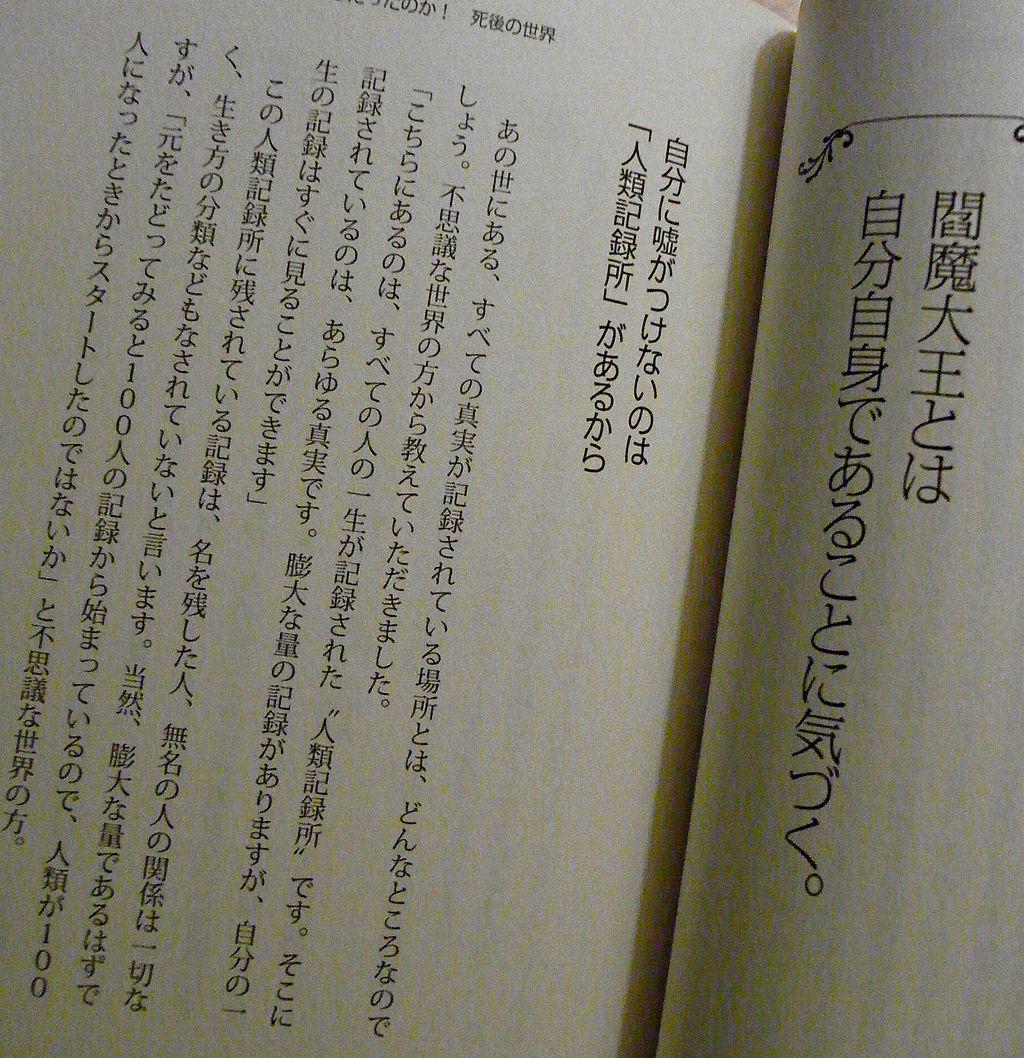 閻魔大王とは
自分自身であることに気づく。
死後の世界
自分に嘘がつけないのは
「人類記録所」があるから
あの世にある、すべての真実が記録されている場所とは、どんなところなので
しょう。不思議な世界の方から教えていただきました。
「こちらにあるのは、すべての人の一生が記録された〝人類記録所〟です。そこに
記録されているのは、あらゆる真実です。膨大な量の記録がありますが、自分の一
生の記録はすぐに見ることができます」
この人類記録所に残されている記録は、名を残した人、無名の人の関係は一切な
く、生き方の分類などもなされていないと言います。当然、膨大な量であるはずで
すが、「元をたどってみると１００人の記録から始まっているので、人類が１００
人になったときからスタートしたのではないか」と不思議な世界の方。